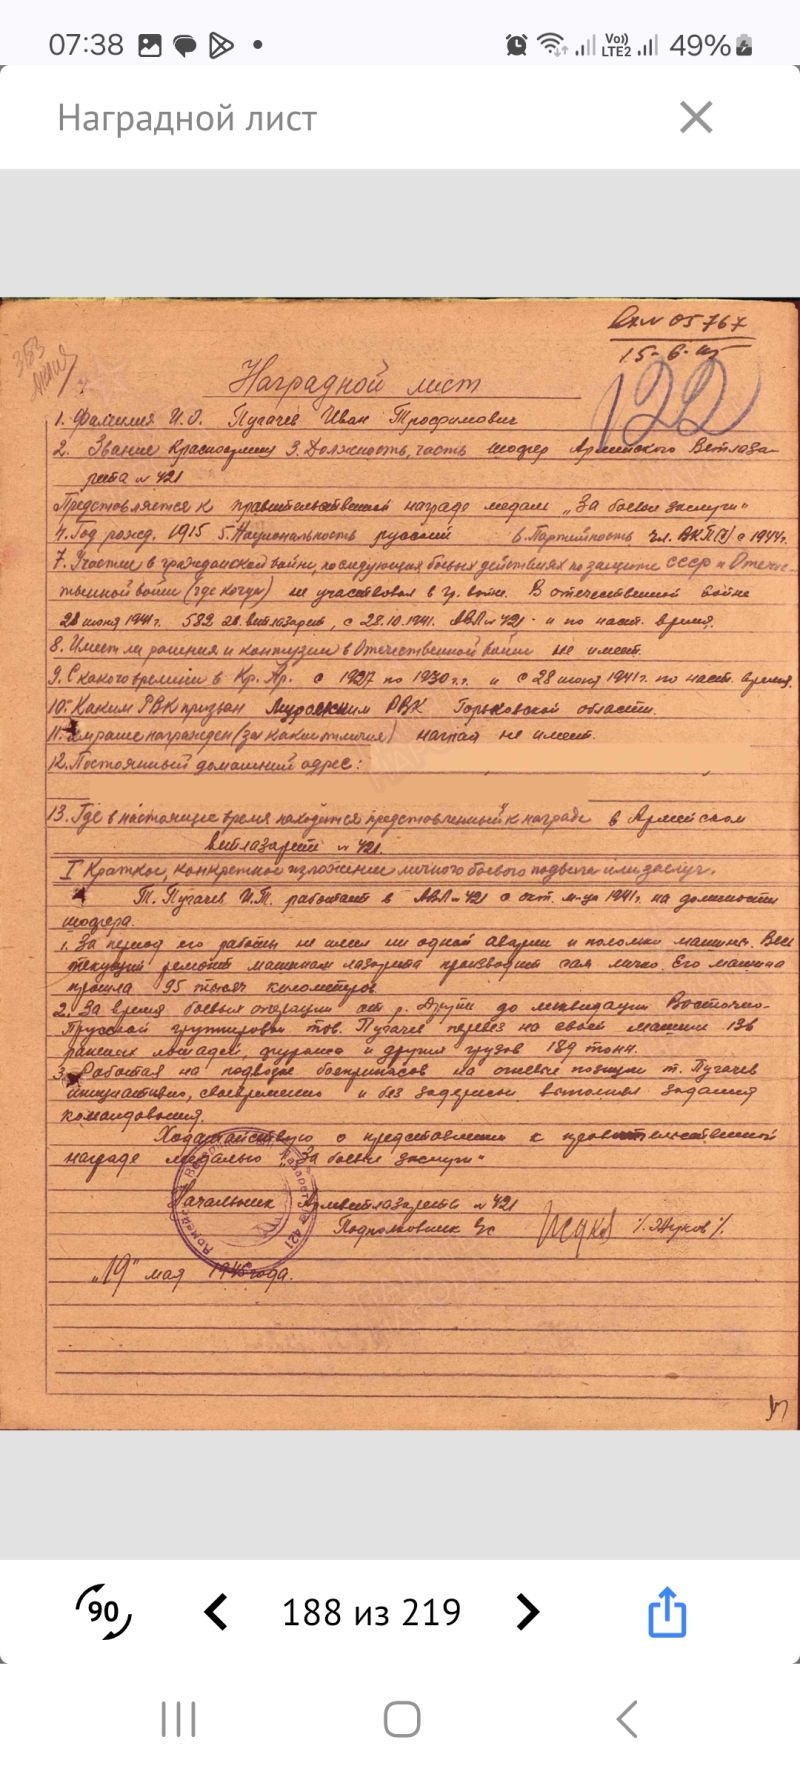 07:38
Vo)) LTE2 49%
Наградной лист
Вх № 05767
15-6-45
122
Наградной лист
1. Фамилия И.О. Пугачев Иван Трофимович
2. Звание Красноармеец 3. Должность, часть шофер Армейского Ветлаза-
рета № 421
Представляется к правительственной награде медаль „За боевые заслуги“
4. Год рожд. 1915 5. Национальность русский 6. Партийность чл. ВКП(б) с 1944г.
7. Участие в гражданской войне, последующих боевых действиях по защите СССР и Отечес-
твенной войне (где когда) не участвовал в гр. войне. В отечественной войне
28 июня 1941г. 582 ветлазарет, с 28.10.1941. АВЛ № 421 и по наст. время.
8. Имеет ли ранения и контузии в Отечественной войне не имеет.
9. С какого времени в Кр. Ар. с 1927 по 1930 г.г. и с 28 июня 1941г. по наст. время.
10. Каким РВК призван РВК Горьковской области.
11. Чем раше награжден (за какие отличия) наград не имеет.
12. Постоянный домашний адрес:
13. Где в настоящее время находится представленный к награде в Армейском
ветлазарете № 421.
I Краткое, конкретное изложение личного боевого подвига или заслуг.
Т. Пугачев И.Т. работает в АВЛ № 421 с окт. м-ца 1941г. на должности
шофера.
1. За период его работы не имел ни одной аварии и поломки машины. Весь
текущий ремонт машинам лазарета производит сам лично. Его машина
прошла 95 тысяч километров
2. За время боевых операции от р. Друти до ликвидации Восточно-
Прусской группировки тов. Пугачев перевез на своей машине 136
раненых лошадей, фуража и других грузов 189 тонн.
3. Работая на подвозе боеприпасов на огневые позиции т. Пугачев
инициативно, своевременно и без задержки выполнял задания
командования.
Ходатайствую о представлении к правительственной
награде медалью „За боевые заслуги“
Начальник Армветлазарета № 421
Подполковник в/с /Жуков/.
„19“ мая 1945 года.
90
188 из 219